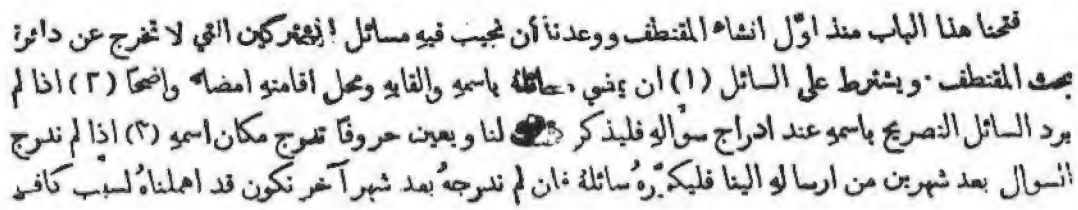 فتحنا هذا الباب منذ اوّل انشاء المقتطف ووعدنا أن نجيب فيهِ مسائل المشتركين التي لا تخرج عن دائرة
بحث المقتطف . ويشترط على السائل (١) ان يمضي مسائلهُ باسمهِ والقابهِ ومحل اقامتهِ امضاءً واضحًا (٢) اذا لم
يرد السائل التصريح باسمهِ عند ادراج سؤالهِ فليذكر ذلك لنا ويعين حروفًا تدرج مكان اسمهِ (٣) اذا لم ندرج
السوال بعد شهرين من ارسالهِ الينا فليكرّرهُ سائلهُ فان لم ندرجهُ بعد شهر آخر نكون قد اهملناهُ لسبب كافٍ